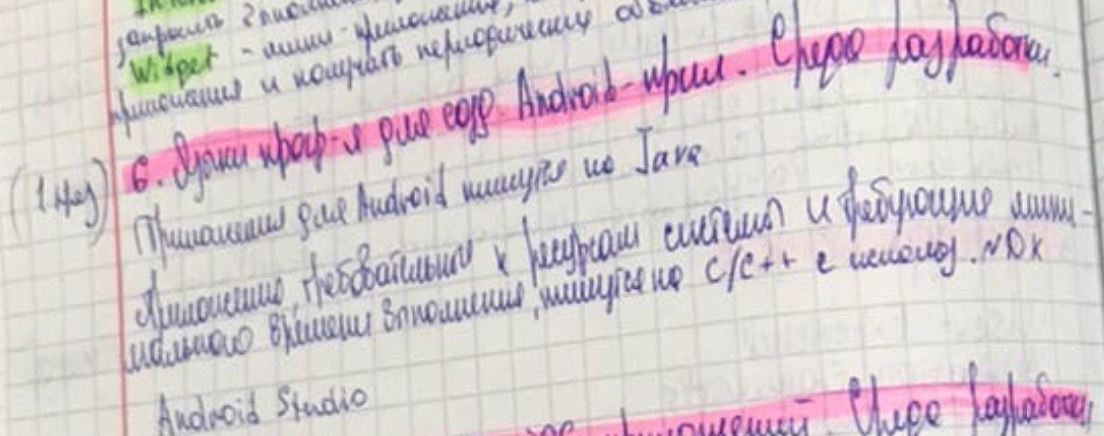 закрыть
Widget - мини-приложения,
приложения и получать периодические
6. Языки прогр-я для созд. Android-прил. Среда разработки.
(1 нед)
Приложения для Android пишутся на Java
Приложения, требовательные к ресурсам системы и требующие мини-
мального времени выполнения, пишутся на C/C++ с использ. NDK
Android Studio
приложений. Среда разработки